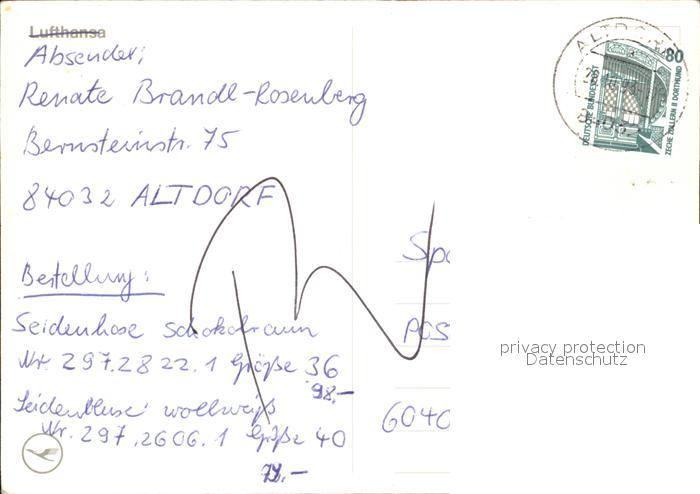 Lufthansa
Absender:
Renate Brandl-Rosenberg
Bernsteinstr. 75
84032 ALTDORF
Bestellung:
Seidenhose schokobraun
Nr. 297.2822.1 Größe 36
98.-
Seidenbluse wollweiß
Nr. 297.2606.1 Größe 40
79.-
ALTDORF
80
DEUTSCHE BUNDESPOST
ZECHE ZOLLERN II DORTMUND
Spo
POS
6040
privacy protection
Datenschutz